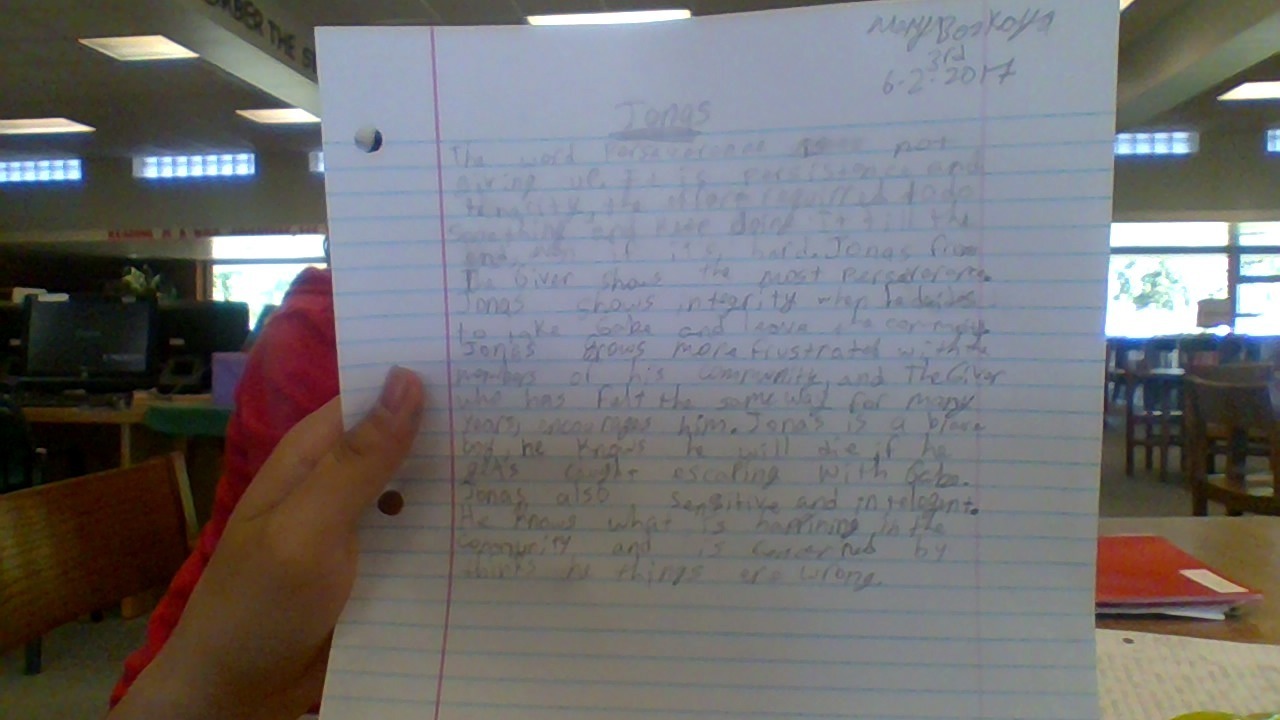 Mary
3rd
6-2-2017
Jonas
The word Perseverance not
giving up. It is persistence and
tenacity, the effort required to do
something and keep doing it till the
end, even if it's hard. Jonas from
The Giver shows the most perserverance.
Jonas shows integrity when he decides
to take Gabe and leave the
Jonas grows more frustrated with the
members of his community, and The Giver
who has felt the same way for many
years, encourages him. Jonas is a brave
boy, he knows he will die if he
gets caught escaping with Gabe.
Jonas also sensitive and
He knows what is happining in the
community and is concerned by
things he things are wrong.